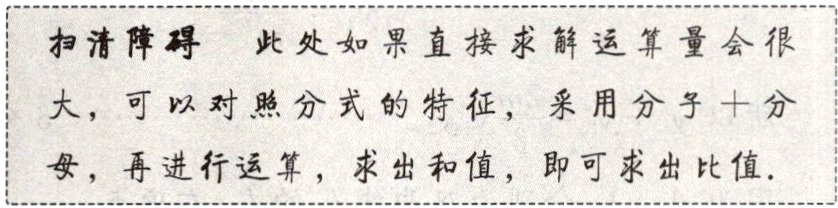 扫清障碍 此处如果直接求解运算量会很
大，可以对照分式的特征，采用分子＋分
母，再进行运算，求出和值，即可求出比值.